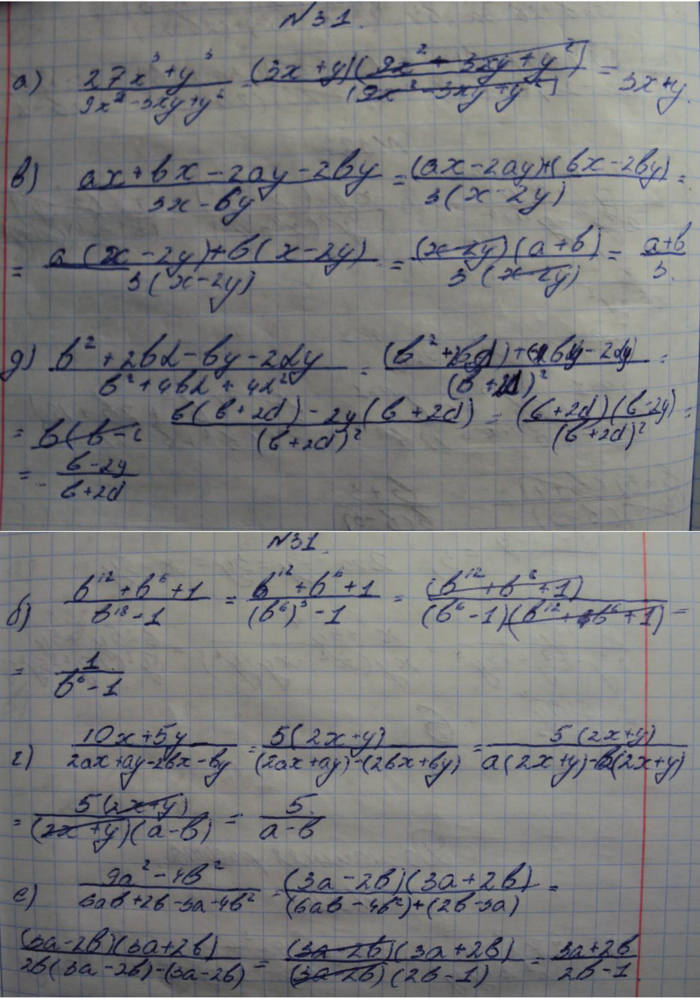 №31.
а) (27x³+y³)/(9x²-3xy+y²) = (3x+y)(9x²+3xy+y²)/(9x²-3xy+y²) = 3x+y.
в) (ax+bx-2ay-2by)/(3x-6y) = ((ax-2ay)+(bx-2by))/(3(x-2y)) =
= (a(x-2y)+b(x-2y))/(3(x-2y)) = ((x-2y)(a+b))/(3(x-2y)) = (a+b)/3.
д) (b²+2bd-by-2dy)/(b²+4bd+4d²) = /(b+2d)² =
= b(b- (b(b+2d)-2y(b+2d))/(b+2d)² = ((b+2d)(b-2y))/(b+2d)² =
= (b-2y)/(b+2d)
№31.
б) (b¹²+b⁶+1)/(b¹⁸-1) = (b¹²+b⁶+1)/((b⁶)³-1) = (b¹²+b⁶+1)/((b⁶-1)(b¹²+b⁶+1)) =
= 1/(b⁶-1)
г) (10x+5y)/(2ax+ay-2bx-by) = 5(2x-y)/((2ax+ay)-(2bx+by)) = 5(2x+y)/(a(2x+y)-b(2x+y))
= 5(2x+y)/((2x+y)(a-b)) = 5/(a-b)
е) (9a²-4b²)/(6ab+2b-3a-4b²) = ((3a-2b)(3a+2b))/((6ab-4b²)+(2b-3a)) =
((3a-2b)(3a+2b))/(2b(3a-2b)-(3a-2b)) = ((3a-2b)(3a+2b))/((3a-2b)(2b-1)) = (3a+2b)/(2b-1)